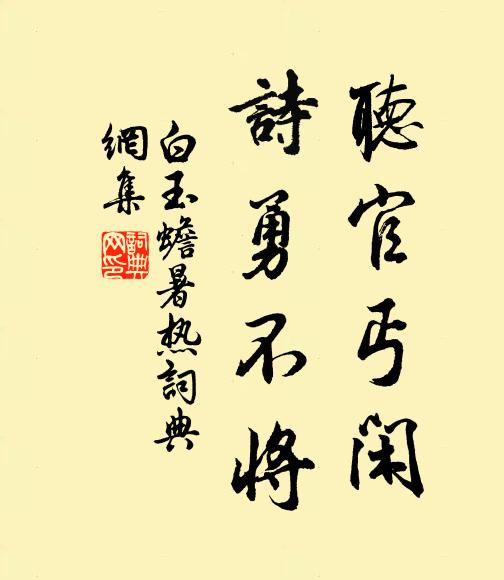 聽官丐閑
詩勇不將
白玉蟾暑热詞典
網集
詞典
网印